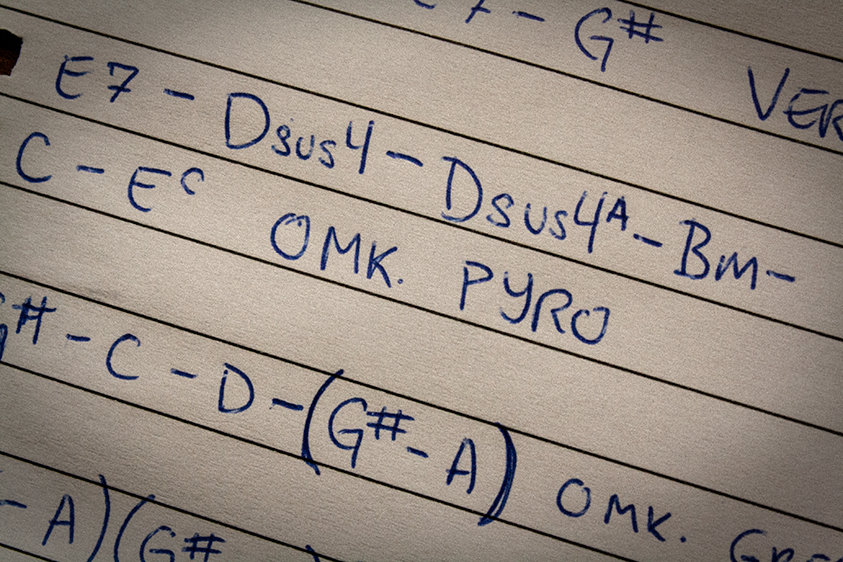 7 - G# VER
E7 - Dsus4 - Dsus4A - Bm -
C - EC OMK. PYRO
G# - C - D - (G# - A) OMK.
- A)(G#